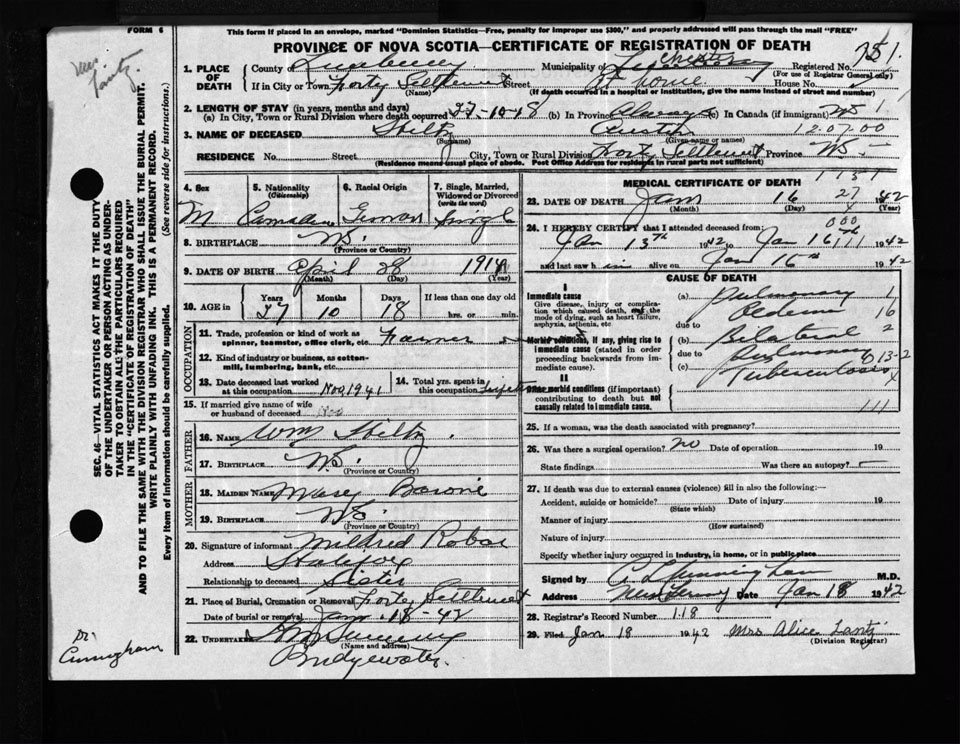 FORM 6
This form if placed in an envelope, marked "Dominion Statistics—Free, penalty for improper use $300," and properly addressed will pass through the mail "FREE"
PROVINCE OF NOVA SCOTIA—CERTIFICATE OF REGISTRATION OF DEATH
Lantz
SEC. 46—VITAL STATISTICS ACT MAKES IT THE DUTY
OF THE UNDERTAKER OR PERSON ACTING AS UNDER-
TAKER TO OBTAIN ALL THE PARTICULARS REQUIRED
IN THE "CERTIFICATE OF REGISTRATION OF DEATH"
AND TO FILE THE SAME WITH THE DIVISION REGISTRAR WHO SHALL ISSUE THE BURIAL PERMIT.
WRITE PLAINLY WITH UNFADING INK. THIS IS A PERMANENT RECORD.
Every item of information should be carefully supplied. (See reverse side for instructions.)
Dr Cunningham
1. PLACE OF DEATH
County of Lunenburg Municipality of Chester Registered No. 751
(For use of Registrar General only)
If in City or Town Forty Settlement Street at home House No.
(Name) (If death occurred in a hospital or institution, give the name instead of street and number)
2. LENGTH OF STAY (in years, months and days)
(a) In City, Town or Rural Division where death occurred 27-10-18 (b) In Province Always (c) In Canada (if immigrant) NS 1
3. NAME OF DECEASED Hiltz Austin 12.07.00
(Surname) (Given name or names)
RESIDENCE No. Street City, Town or Rural Division Forty Settlement Province NS
(Residence means usual place of abode. Post Office Address for residents in rural parts not sufficient)
4. Sex M
5. Nationality (Citizenship) Canadian
6. Racial Origin German
7. Single, Married, Widowed or Divorced (write the word) Single
8. BIRTHPLACE NS.
(Province or Country)
9. DATE OF BIRTH April 28 1914
(Month) (Day) (Year)
10. AGE in Years 27 Months 10 Days 18 If less than one day old hrs. or min.
OCCUPATION
11. Trade, profession or kind of work as spinner, teamster, office clerk, etc. Farmer
12. Kind of industry or business, as cotton-mill, lumbering, bank, etc.
13. Date deceased last worked at this occupation Nov, 1941
14. Total yrs. spent in this occupation
15. If married give name of wife or husband of deceased
FATHER
16. NAME Wm Hiltz.
17. BIRTHPLACE NS.
(Province or Country)
MOTHER
18. MAIDEN NAME
19. BIRTHPLACE NS.
(Province or Country)
20. Signature of informant Mildred Robar
Address Halifax
Relationship to deceased Sister
21. Place of Burial, Cremation or Removal Forty Settlement
Date of burial or removal Jan. 18-42
22. UNDERTAKER
(Name and address)
Bridgewater.
MEDICAL CERTIFICATE OF DEATH
23. DATE OF DEATH Jan 16 1942
(Month) (Day)
24. I HEREBY CERTIFY that I attended deceased from:
Jan 13th 1942 to Jan 16th 1942
and last saw him alive on Jan 16th 1942
CAUSE OF DEATH
I
Immediate cause
Give disease, injury or complication which caused death, not the mode of dying, such as heart failure, asphyxia, asthenia, etc
(a) Pulmonary Oedema
due to
Morbid conditions, if any, giving rise to immediate cause (stated in order proceeding backwards from immediate cause).
(b) Bilateral
due to Pulmonary
(c) Tuberculosis 13-2
II
Other morbid conditions (if important) contributing to death but not causally related to immediate cause.
111
25. If a woman, was the death associated with pregnancy?
26. Was there a surgical operation? no Date of operation 19
State findings Was there an autopsy?
27. If death was due to external causes (violence) fill in also the following:—
Accident, suicide or homicide? Date of injury 19
(State which)
Manner of injury
(How sustained)
Nature of injury
Specify whether injury occurred in industry, in home, or in public place
Signed by C L Cunningham M.D.
Address New Germany Date Jan 18 1942
28. Registrar's Record Number 118
29. Filed Jan 18 1942 Mrs Alice Lantz
(Division Registrar)